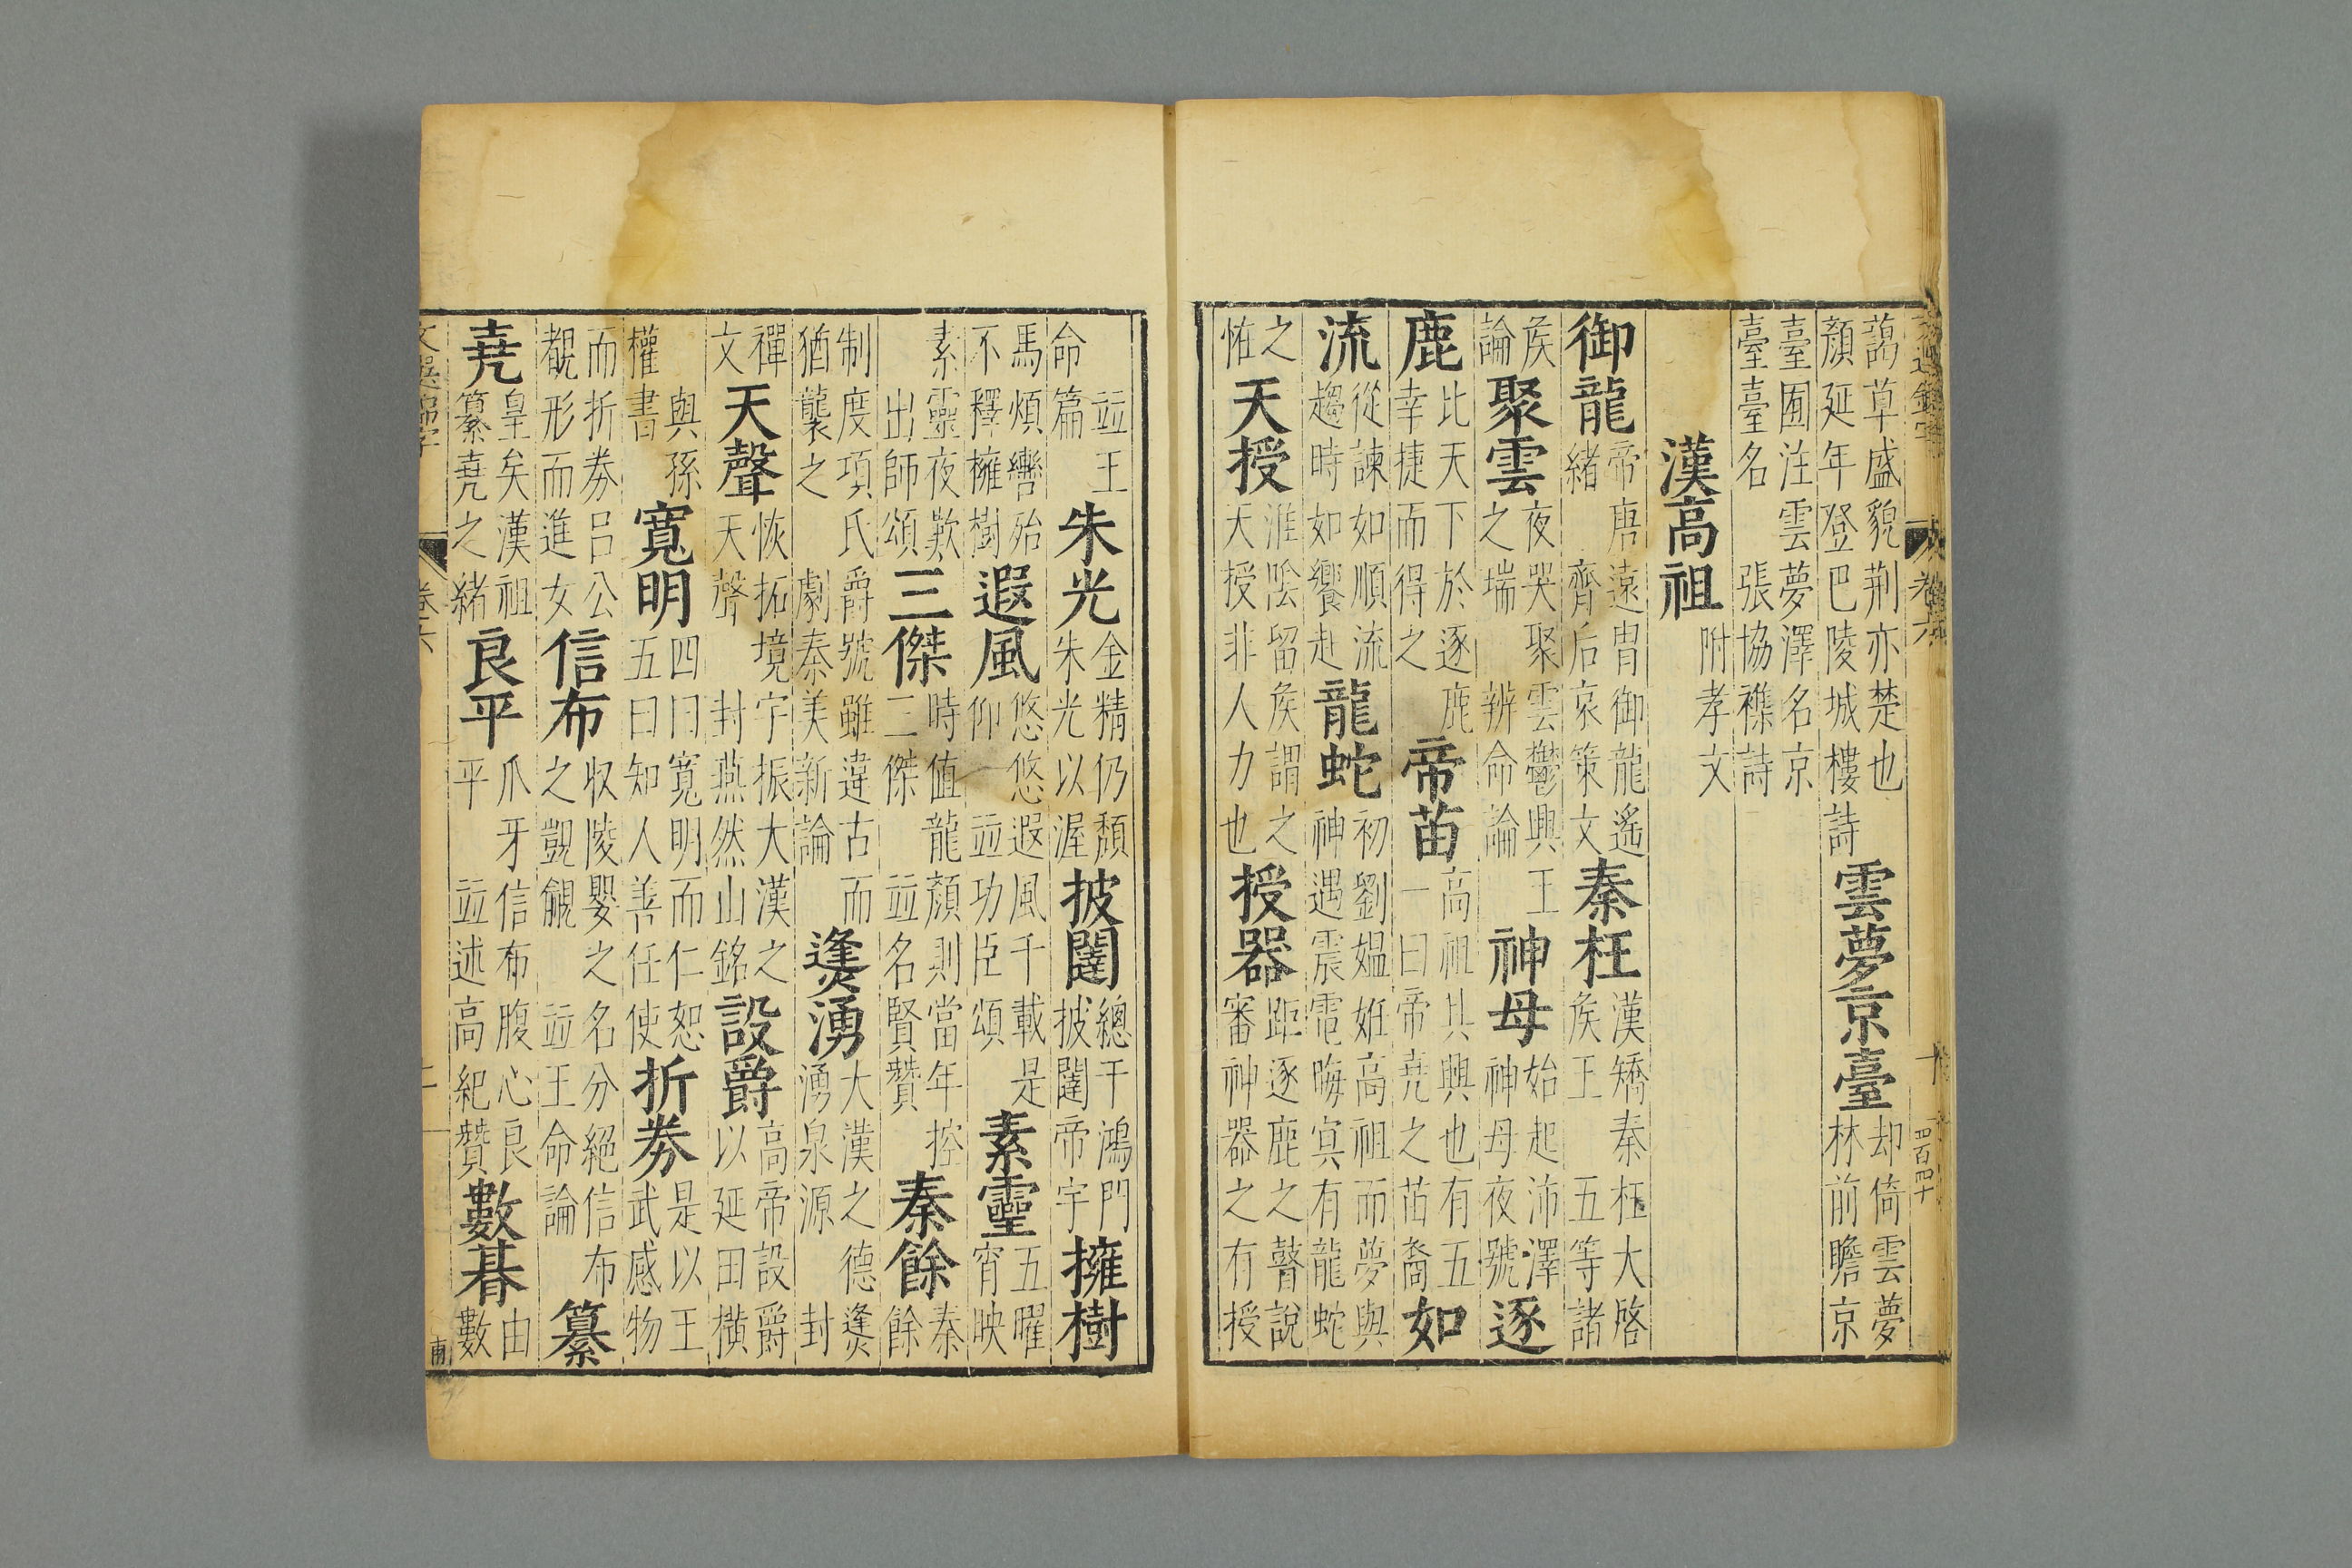 藹草盛貌荆亦楚也
顏延年登巴陵城樓詩
雲夢京臺
却倚雲夢
林前瞻京
臺囿注雲夢澤名京
臺臺名 張協襍詩
漢高祖
附孝文
御龍
帝唐遠冑御龍遙
緒 齊后哀策文
秦枉
漢矯秦枉大啓
侯王 五等諸
侯
論
聚雲
夜哭聚雲鬱興王
之瑞 辨命論
神母
始起沛澤
神母夜號
逐
鹿
比天下於逐鹿
幸捷而得之
帝苗
高祖其興也有五
一曰帝堯之苗裔
如
流
從諫如順流
趨時如饗赴
龍蛇
初劉媼姙高祖而夢與
神遇震電晦冥有龍蛇
之
恠
天授
淮陰留侯謂之
天授非人力也
授器
距逐鹿之瞽說
審神器之有授
竝王
命篇
朱光
金精仍頹
朱光以渥
披闥
總干鴻門
披闥帝宇
擁樹
馬煩轡殆
不釋擁樹
遐風
悠悠遐風千載是
仰 竝功臣頌
素靈
五曜
宵映
素靈夜歎
出師頌
三傑
時值龍顏則當年控
三傑 竝名賢贊
秦餘
秦
餘
制度項氏爵號雖違古而
猶襲之 劇秦美新論
熢湧
大漢之德熢
湧泉源 封
禪
文
天聲
恢拓境宇振大漢之
天聲 封燕然山銘
設爵
高帝設爵
以延田橫
與孫
權書
寬明
四曰寬明而仁恕
五曰知人善任使
折券
是以王
武感物
而折券呂公
覩形而進女
信布
收陵嬰之名分絕信布
之覬覦 竝王命論
纂
堯
皇矣漢祖
纂堯之緒
良平
爪牙信布腹心良
平 竝述高紀贊
數朞
由
數